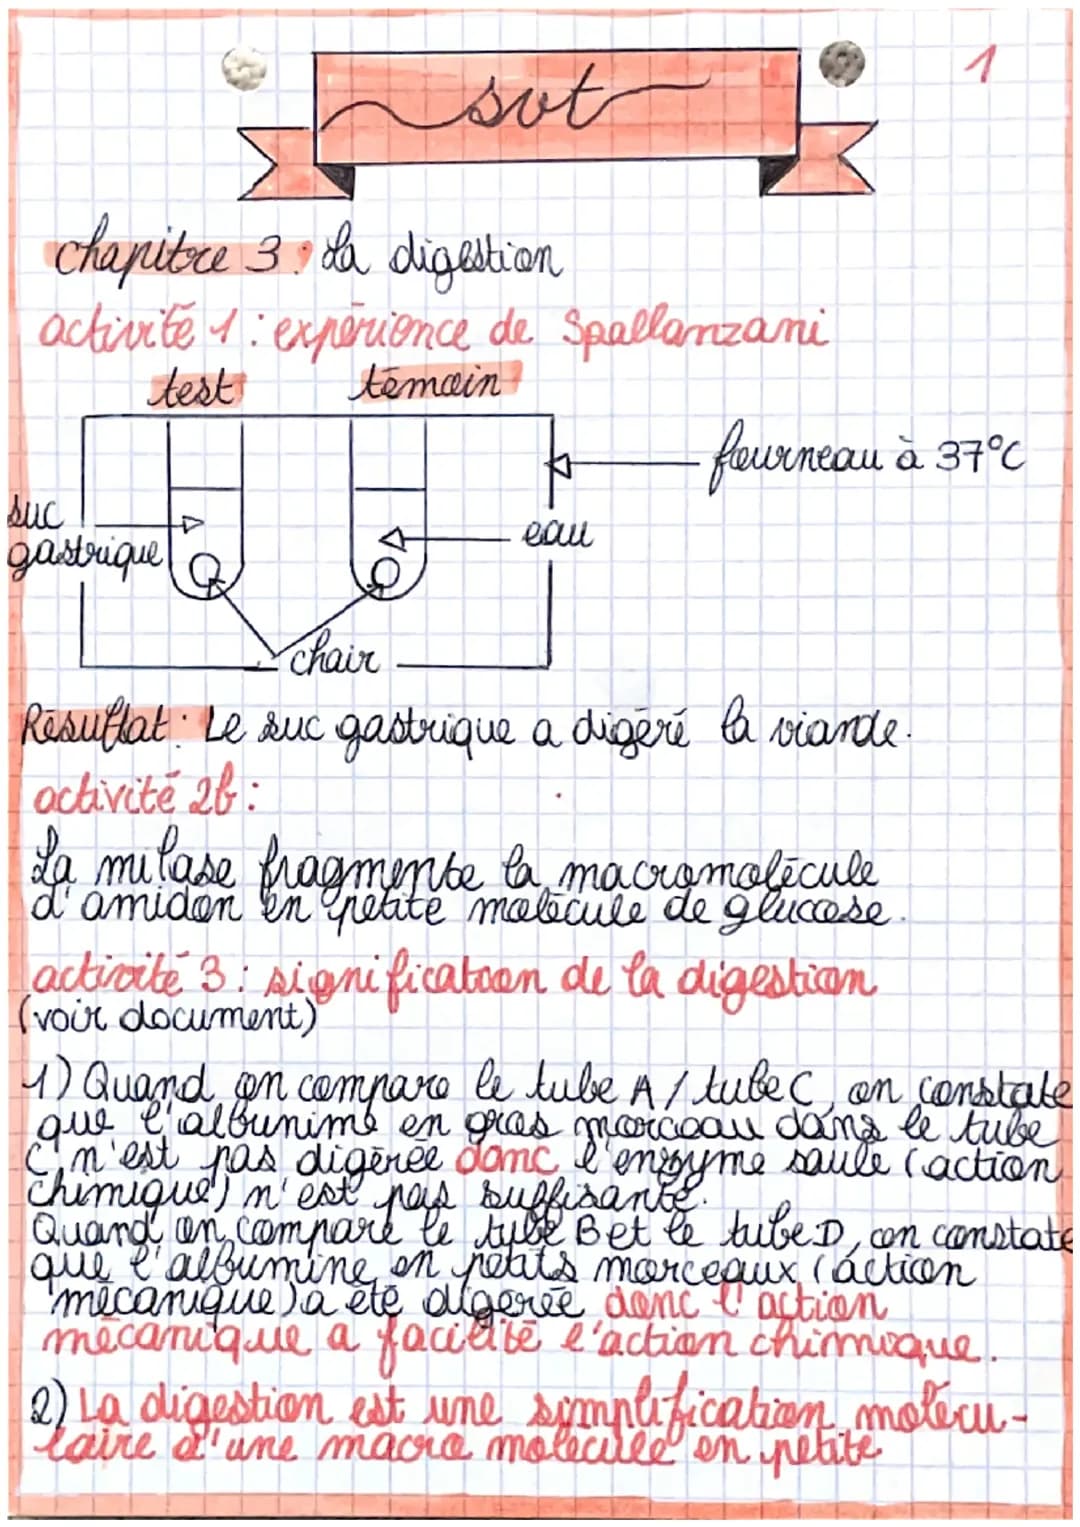 1
svt
chapitre 3 : La digestion
activité 1 : expérience de Spallanzani
test témoin
fourneau à 37°C
suc
gastrique
eau
chair
Résultat : Le suc gastrique a digéré la viande.
activité 2b :
La milase fragmente la macromolécule
d'amidon en petite molécule de glucose.
activité 3 : signification de la digestion
(voir document)
1) Quand on compare le tube A / tube C, on constate
que l'albunime en gros morceau dans le tube
C, n'est pas digérée donc l'enzyme saule (action
chimique) n'est pas suffisante.
Quand on compare le tube B et le tube D, on constate
que l'albumine en petits morceaux (action
mécanique) a été digérée donc l'action
mécanique a facilité l'action chimique.
2) La digestion est une simplification molécu-
laire d'une macro molécule en petite